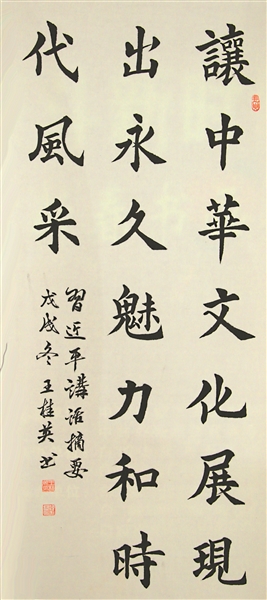 讓中華文化展現
出永久魅力和時
代風采
習近平講話摘要
戊戌冬王桂英书